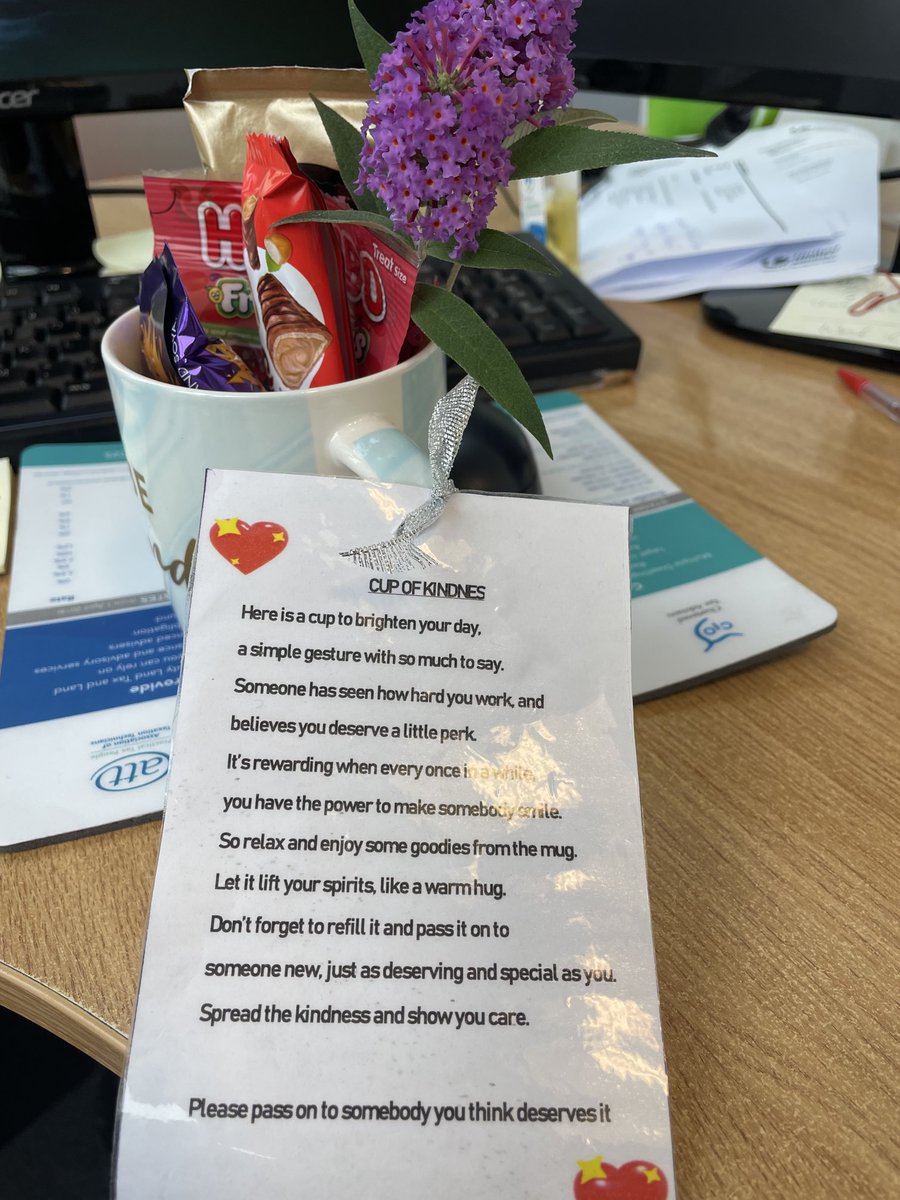 acer
Treat size
CUP OF KINDNES
Here is a cup to brighten your day,
a simple gesture with so much to say.
Someone has seen how hard you work, and
believes you deserve a little perk.
It's rewarding when every once in a while,
you have the power to make somebody smile.
So relax and enjoy some goodies from the mug.
Let it lift your spirits, like a warm hug.
Don't forget to refill it and pass it on to
someone new, just as deserving and special as you.
Spread the kindness and show you care.
Please pass on to somebody you think deserves it
Rate
provide
ty Land Tax and Land
y you can rely on
ance and advisory services
att
Association of
Taxation Technicians
Chartered
Tax Advisers